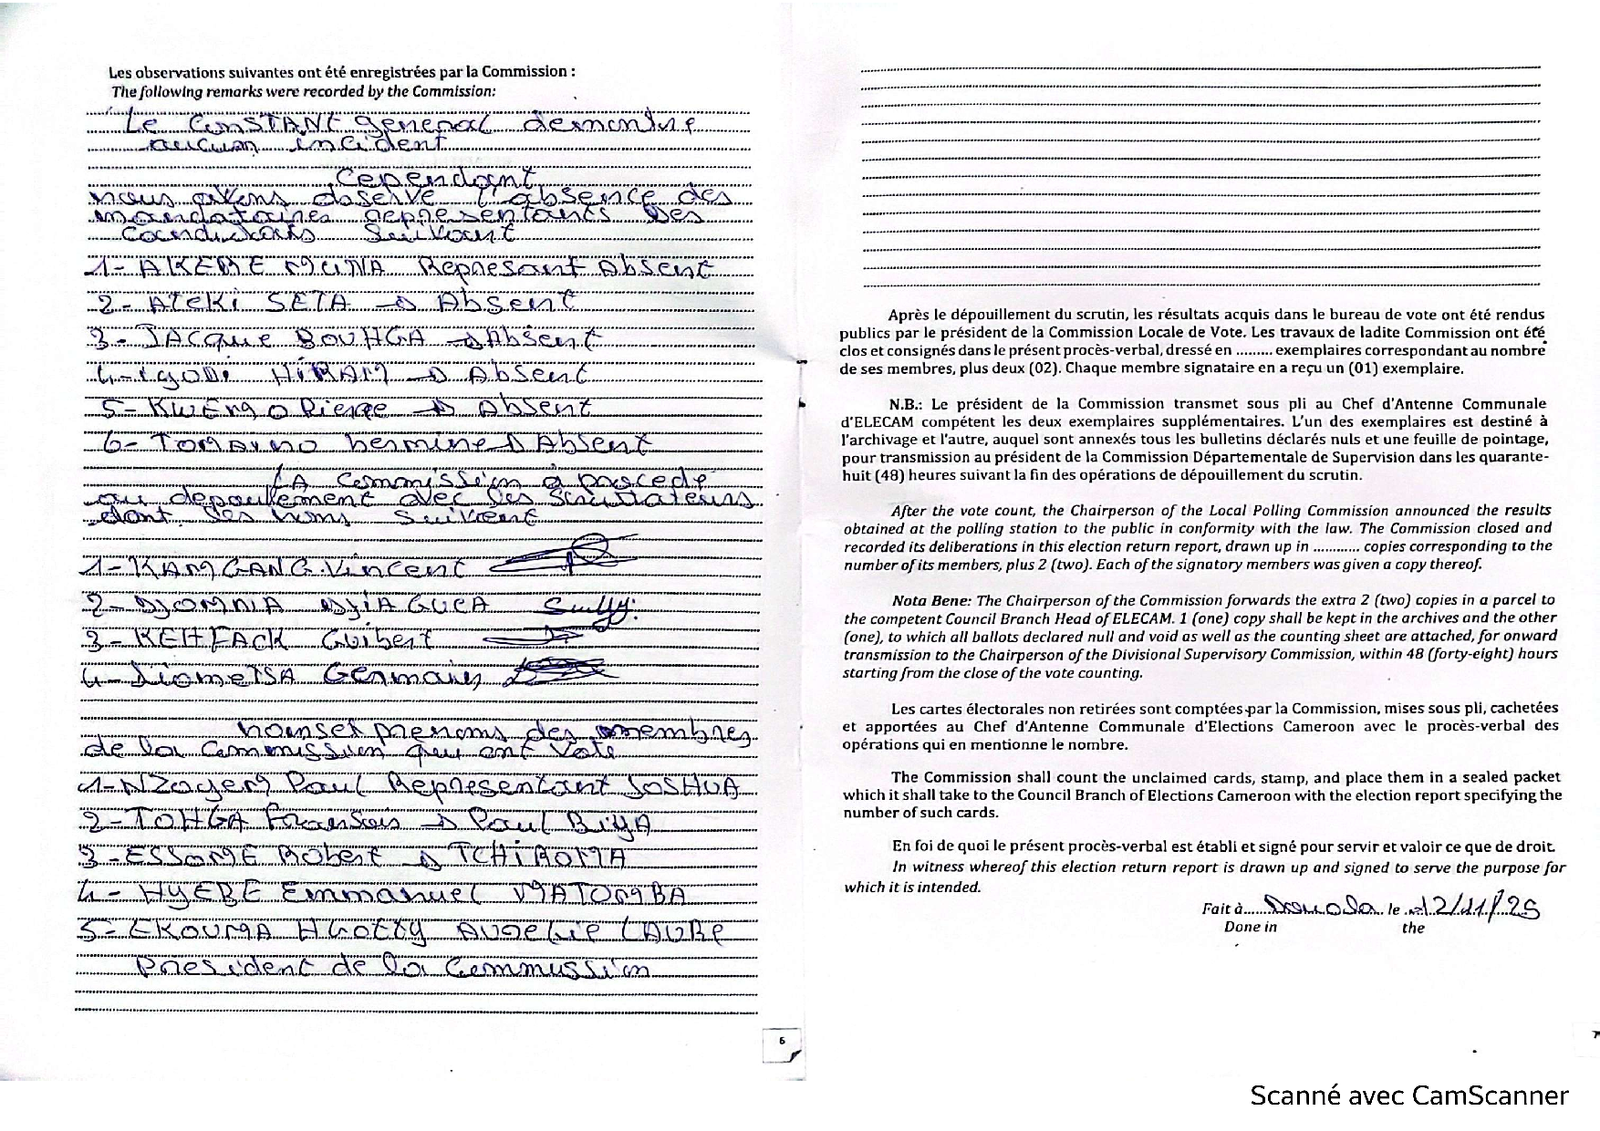 Les observations suivantes ont été enregistrées par la Commission :
The following remarks were recorded by the Commission:
Le ConSTANT general demontre
aucun incident
Cependant
nous avons observé l'absence des
mandataires representants des
Candidats Suivant
1- AKERE MUNA Represant Absent
2- ATEKI SETA → Absent
3- JACque BOUHGA → Absent
4- Lgodi HiRAM → Absent
5- KWEMO Pierre → Absent
6- TOMAINO hermine → Absent
LA Commission à procede
au depouillement avec les Scrutateurs
dont les noms Suivent
1- KAMGANG Vincent
2- DJOMNIA DJIAGUEA
3- KEHFACK Guibert
4- DiomeTSA Germain
noms et prenoms des membres
de la Commission qui ont Voté
1- NZOYEM Paul Representant JOSHUA
2- TOHGA Fransois → Paul BiYA
3- ESSOME Robert → TCHiROMA
4- HYEBE Emmanuel MATOMBA
5- EKOUMA Hgotty AURELIE LAURE
President de la Commission
6
Après le dépouillement du scrutin, les résultats acquis dans le bureau de vote ont été rendus
publics par le président de la Commission Locale de Vote. Les travaux de ladite Commission ont été
clos et consignés dans le présent procès-verbal, dressé en ......... exemplaires correspondant au nombre
de ses membres, plus deux (02). Chaque membre signataire en a reçu un (01) exemplaire.
N.B.: Le président de la Commission transmet sous pli au Chef d'Antenne Communale
d'ELECAM compétent les deux exemplaires supplémentaires. L'un des exemplaires est destiné à
l'archivage et l'autre, auquel sont annexés tous les bulletins déclarés nuls et une feuille de pointage,
pour transmission au président de la Commission Départementale de Supervision dans les quarante-
huit (48) heures suivant la fin des opérations de dépouillement du scrutin.
After the vote count, the Chairperson of the Local Polling Commission announced the results
obtained at the polling station to the public in conformity with the law. The Commission closed and
recorded its deliberations in this election return report, drawn up in ............ copies corresponding to the
number of its members, plus 2 (two). Each of the signatory members was given a copy thereof.
Nota Bene: The Chairperson of the Commission forwards the extra 2 (two) copies in a parcel to
the competent Council Branch Head of ELECAM. 1 (one) copy shall be kept in the archives and the other
(one), to which all ballots declared null and void as well as the counting sheet are attached, for onward
transmission to the Chairperson of the Divisional Supervisory Commission, within 48 (forty-eight) hours
starting from the close of the vote counting.
Les cartes électorales non retirées sont comptées par la Commission, mises sous pli, cachetées
et apportées au Chef d'Antenne Communale d'Elections Cameroon avec le procès-verbal des
opérations qui en mentionne le nombre.
The Commission shall count the unclaimed cards, stamp, and place them in a sealed packet
which it shall take to the Council Branch of Elections Cameroon with the election report specifying the
number of such cards.
En foi de quoi le présent procès-verbal est établi et signé pour servir et valoir ce que de droit.
In witness whereof this election return report is drawn up and signed to serve the purpose for
which it is intended.
Fait à Douala le 12/11/25
Done in the
7
Scanné avec CamScanner